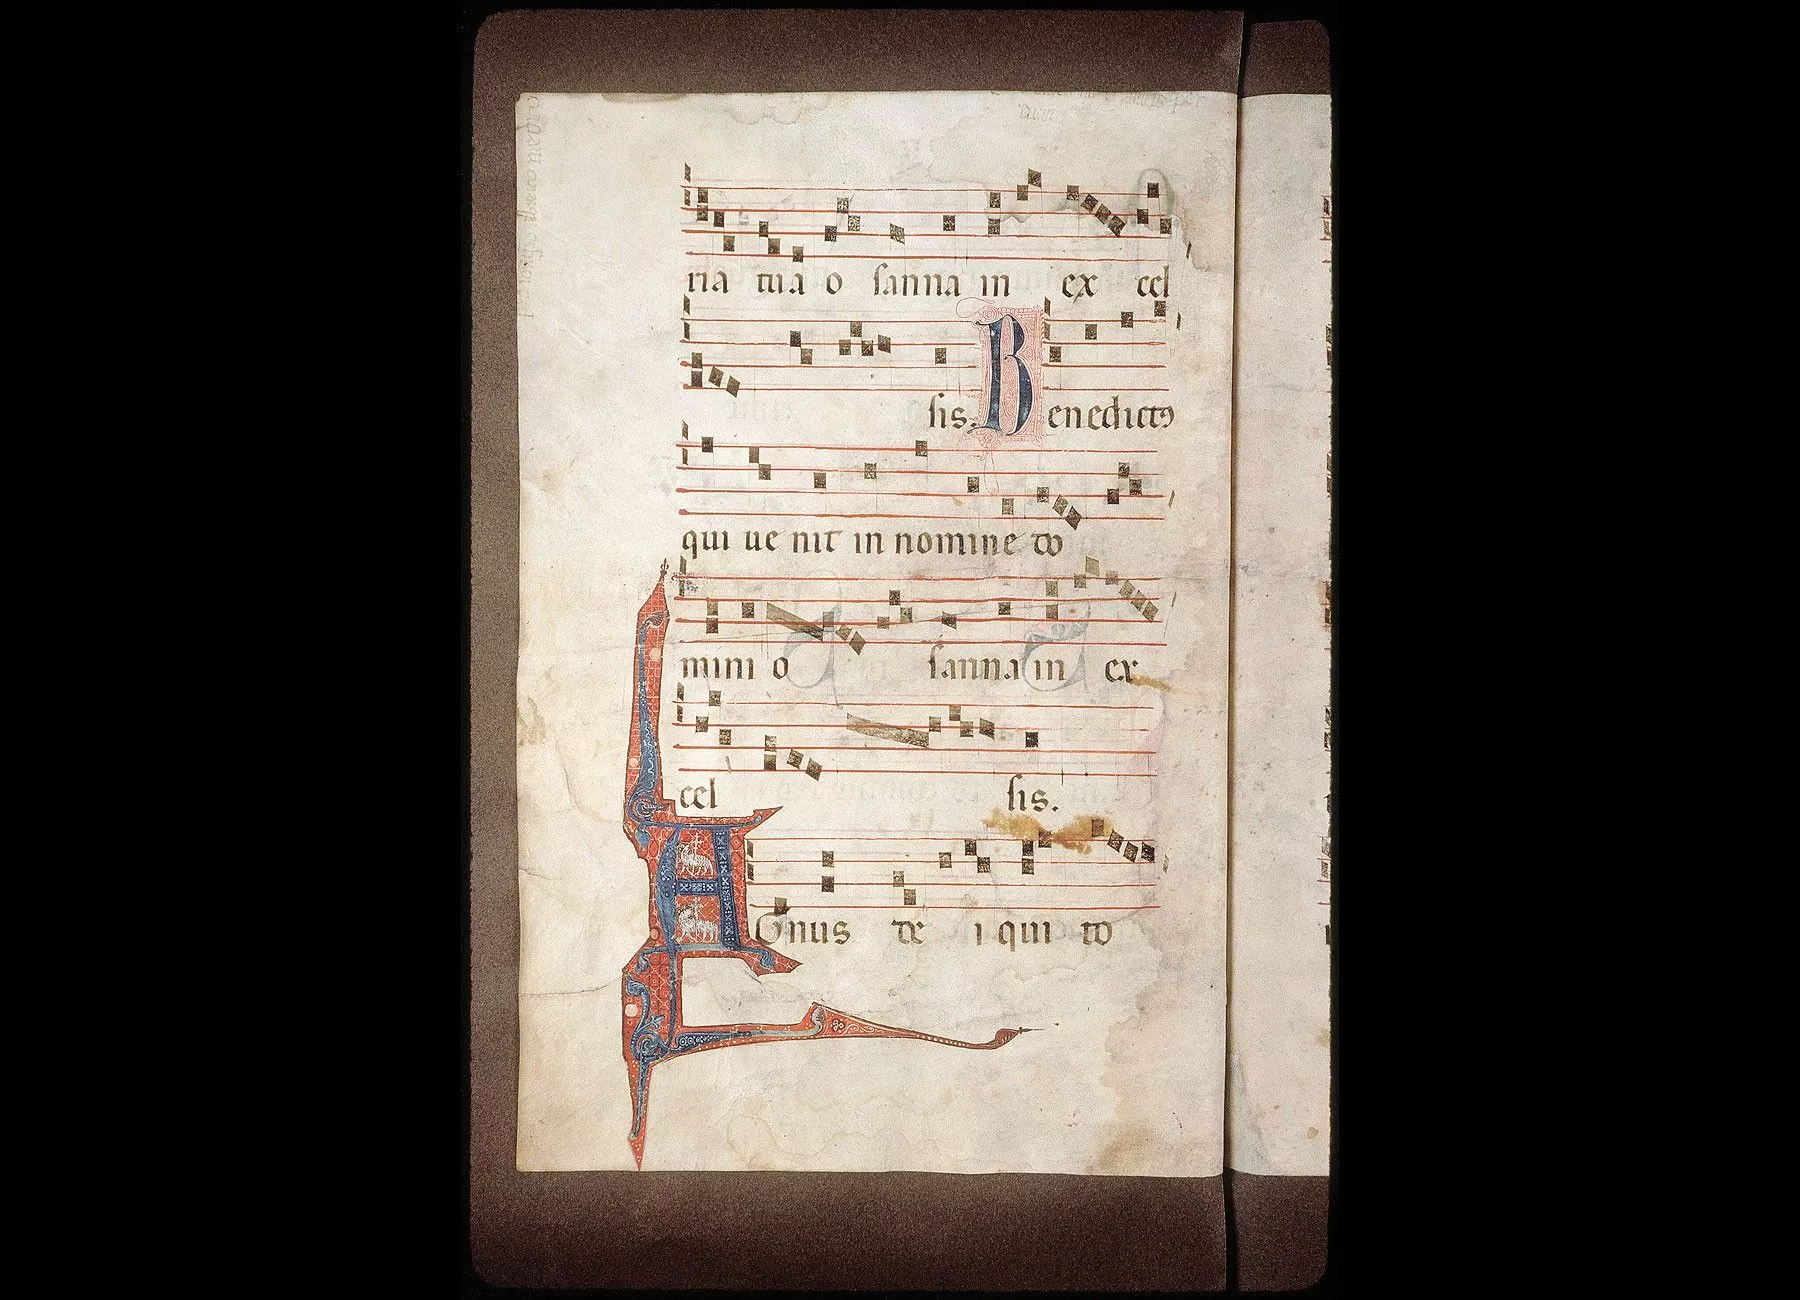 ria tua o sanna in ex cel
sis. Benedictꝰ
qui ue nit in nomine do
mini o sanna in ex
cel sis.
AGnus de i qui to